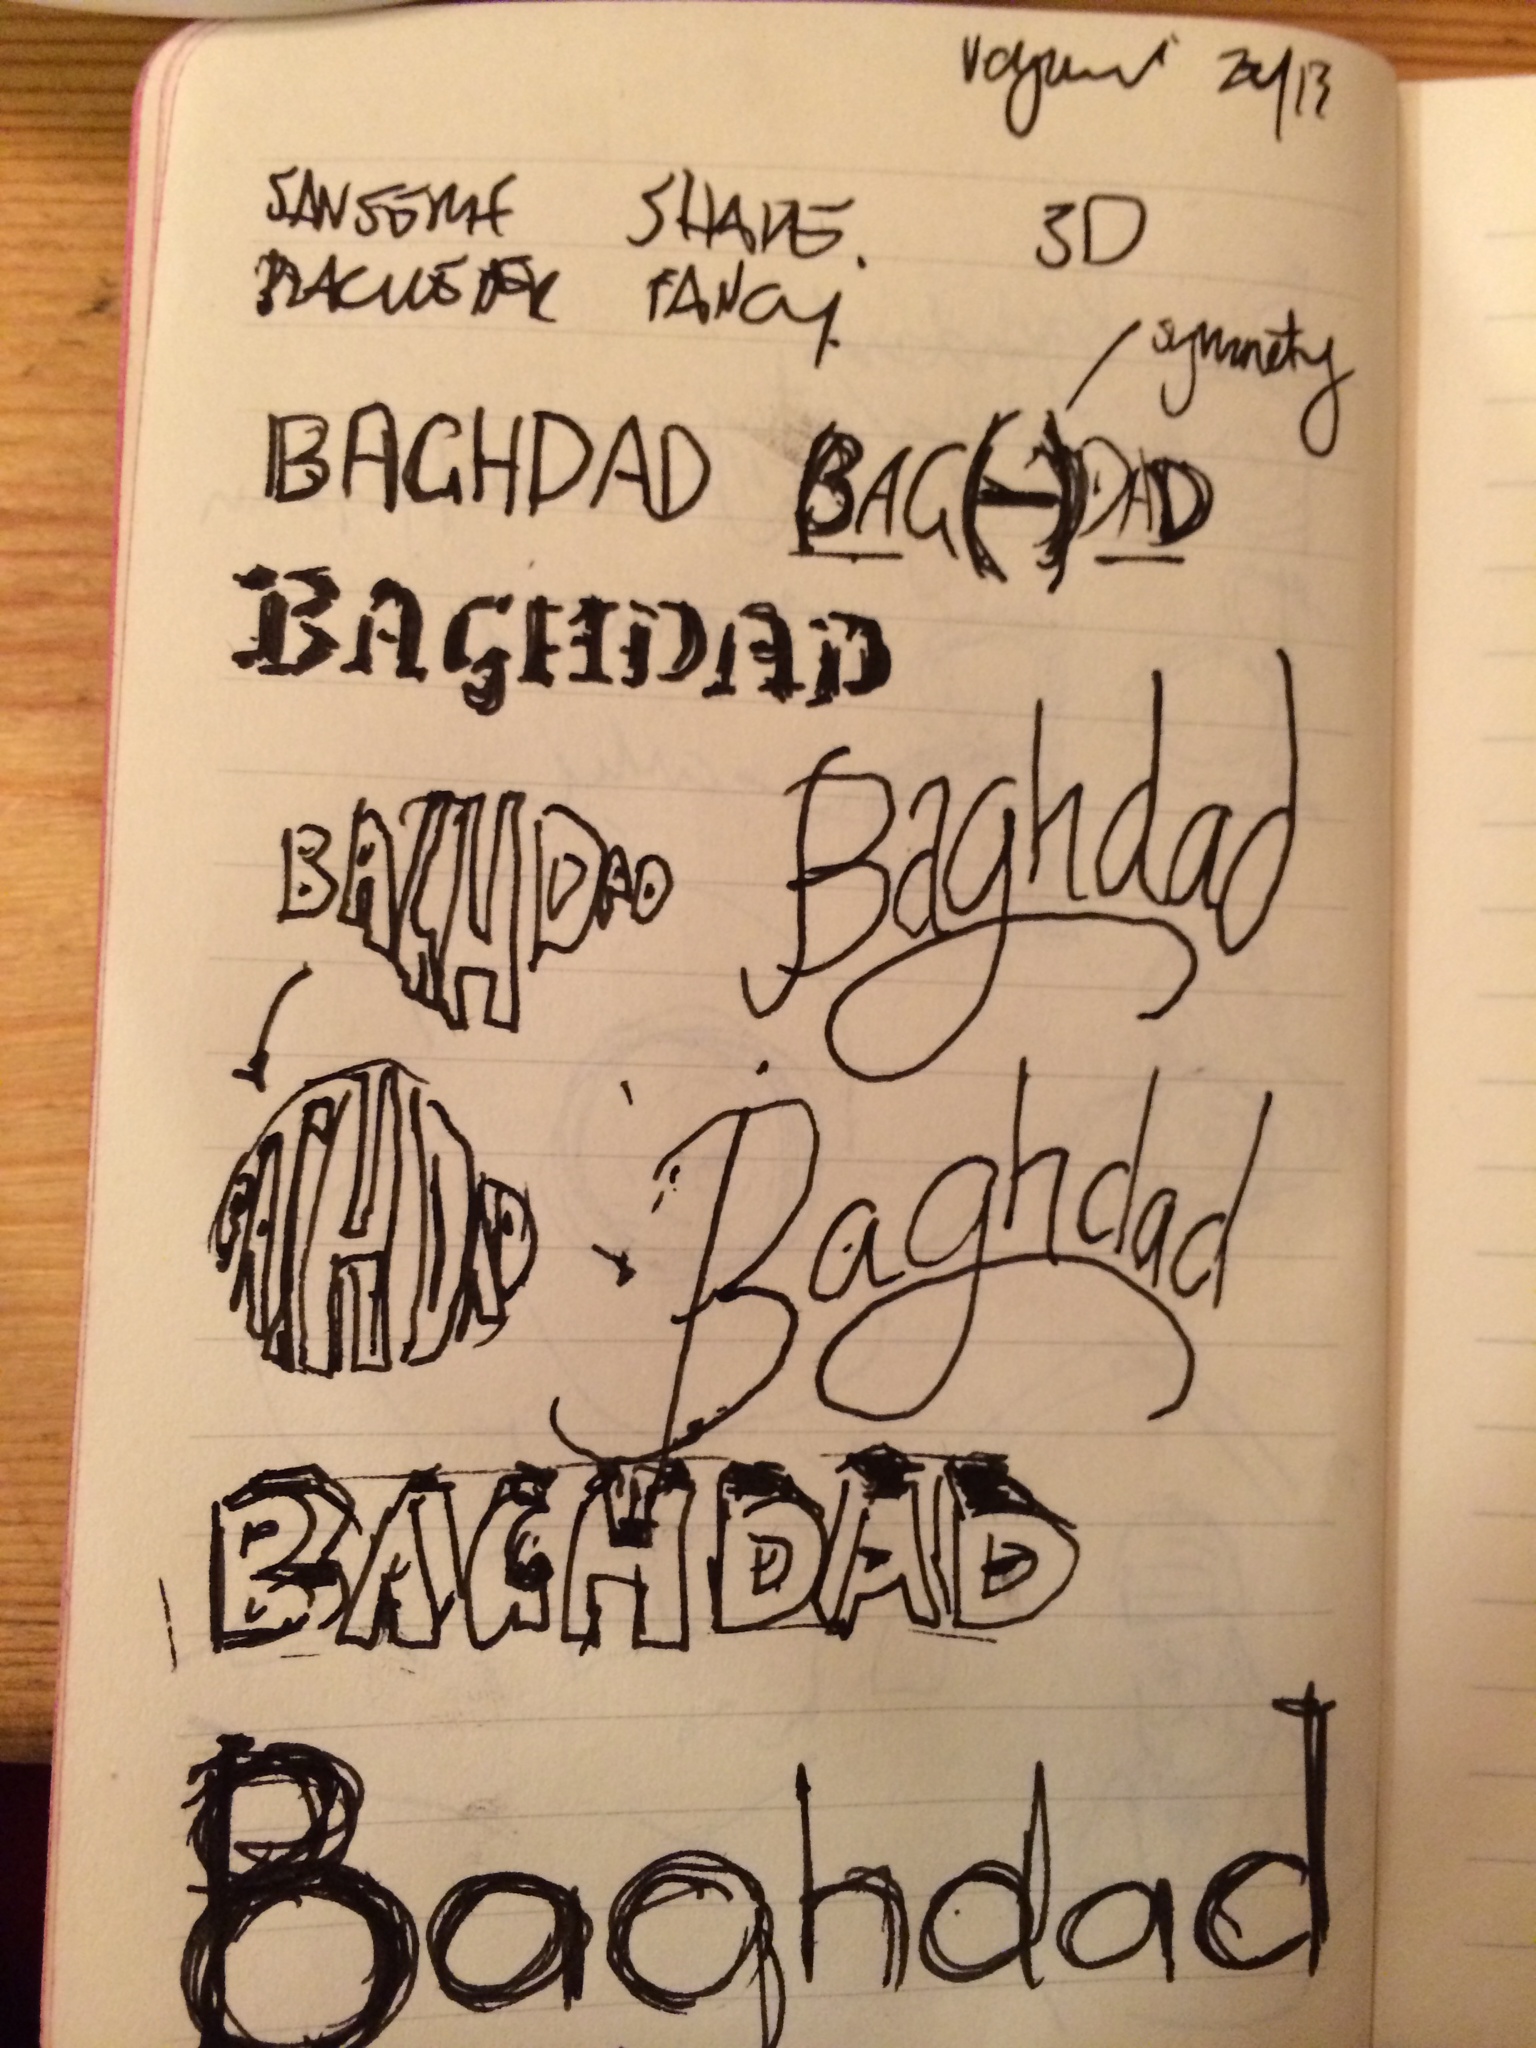 SANSERIF SHAPE. 3D
BLACKLETTER FANCY
symmetry
BAGHDAD BAGHDAD
BAGHDAD
BAGHDAD Baghdad
BAGHDAD Baghdad
BAGHDAD
Baghdad